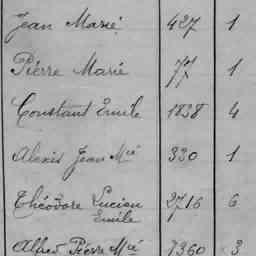 Jean Marie 427 1
Pierre Marie 77 1
Constant Emile 1838 4
Alexis Jean Mie 330 1
Théodore Lucien 2716 6
Emile
Alfred Pierre Mie 7360 3